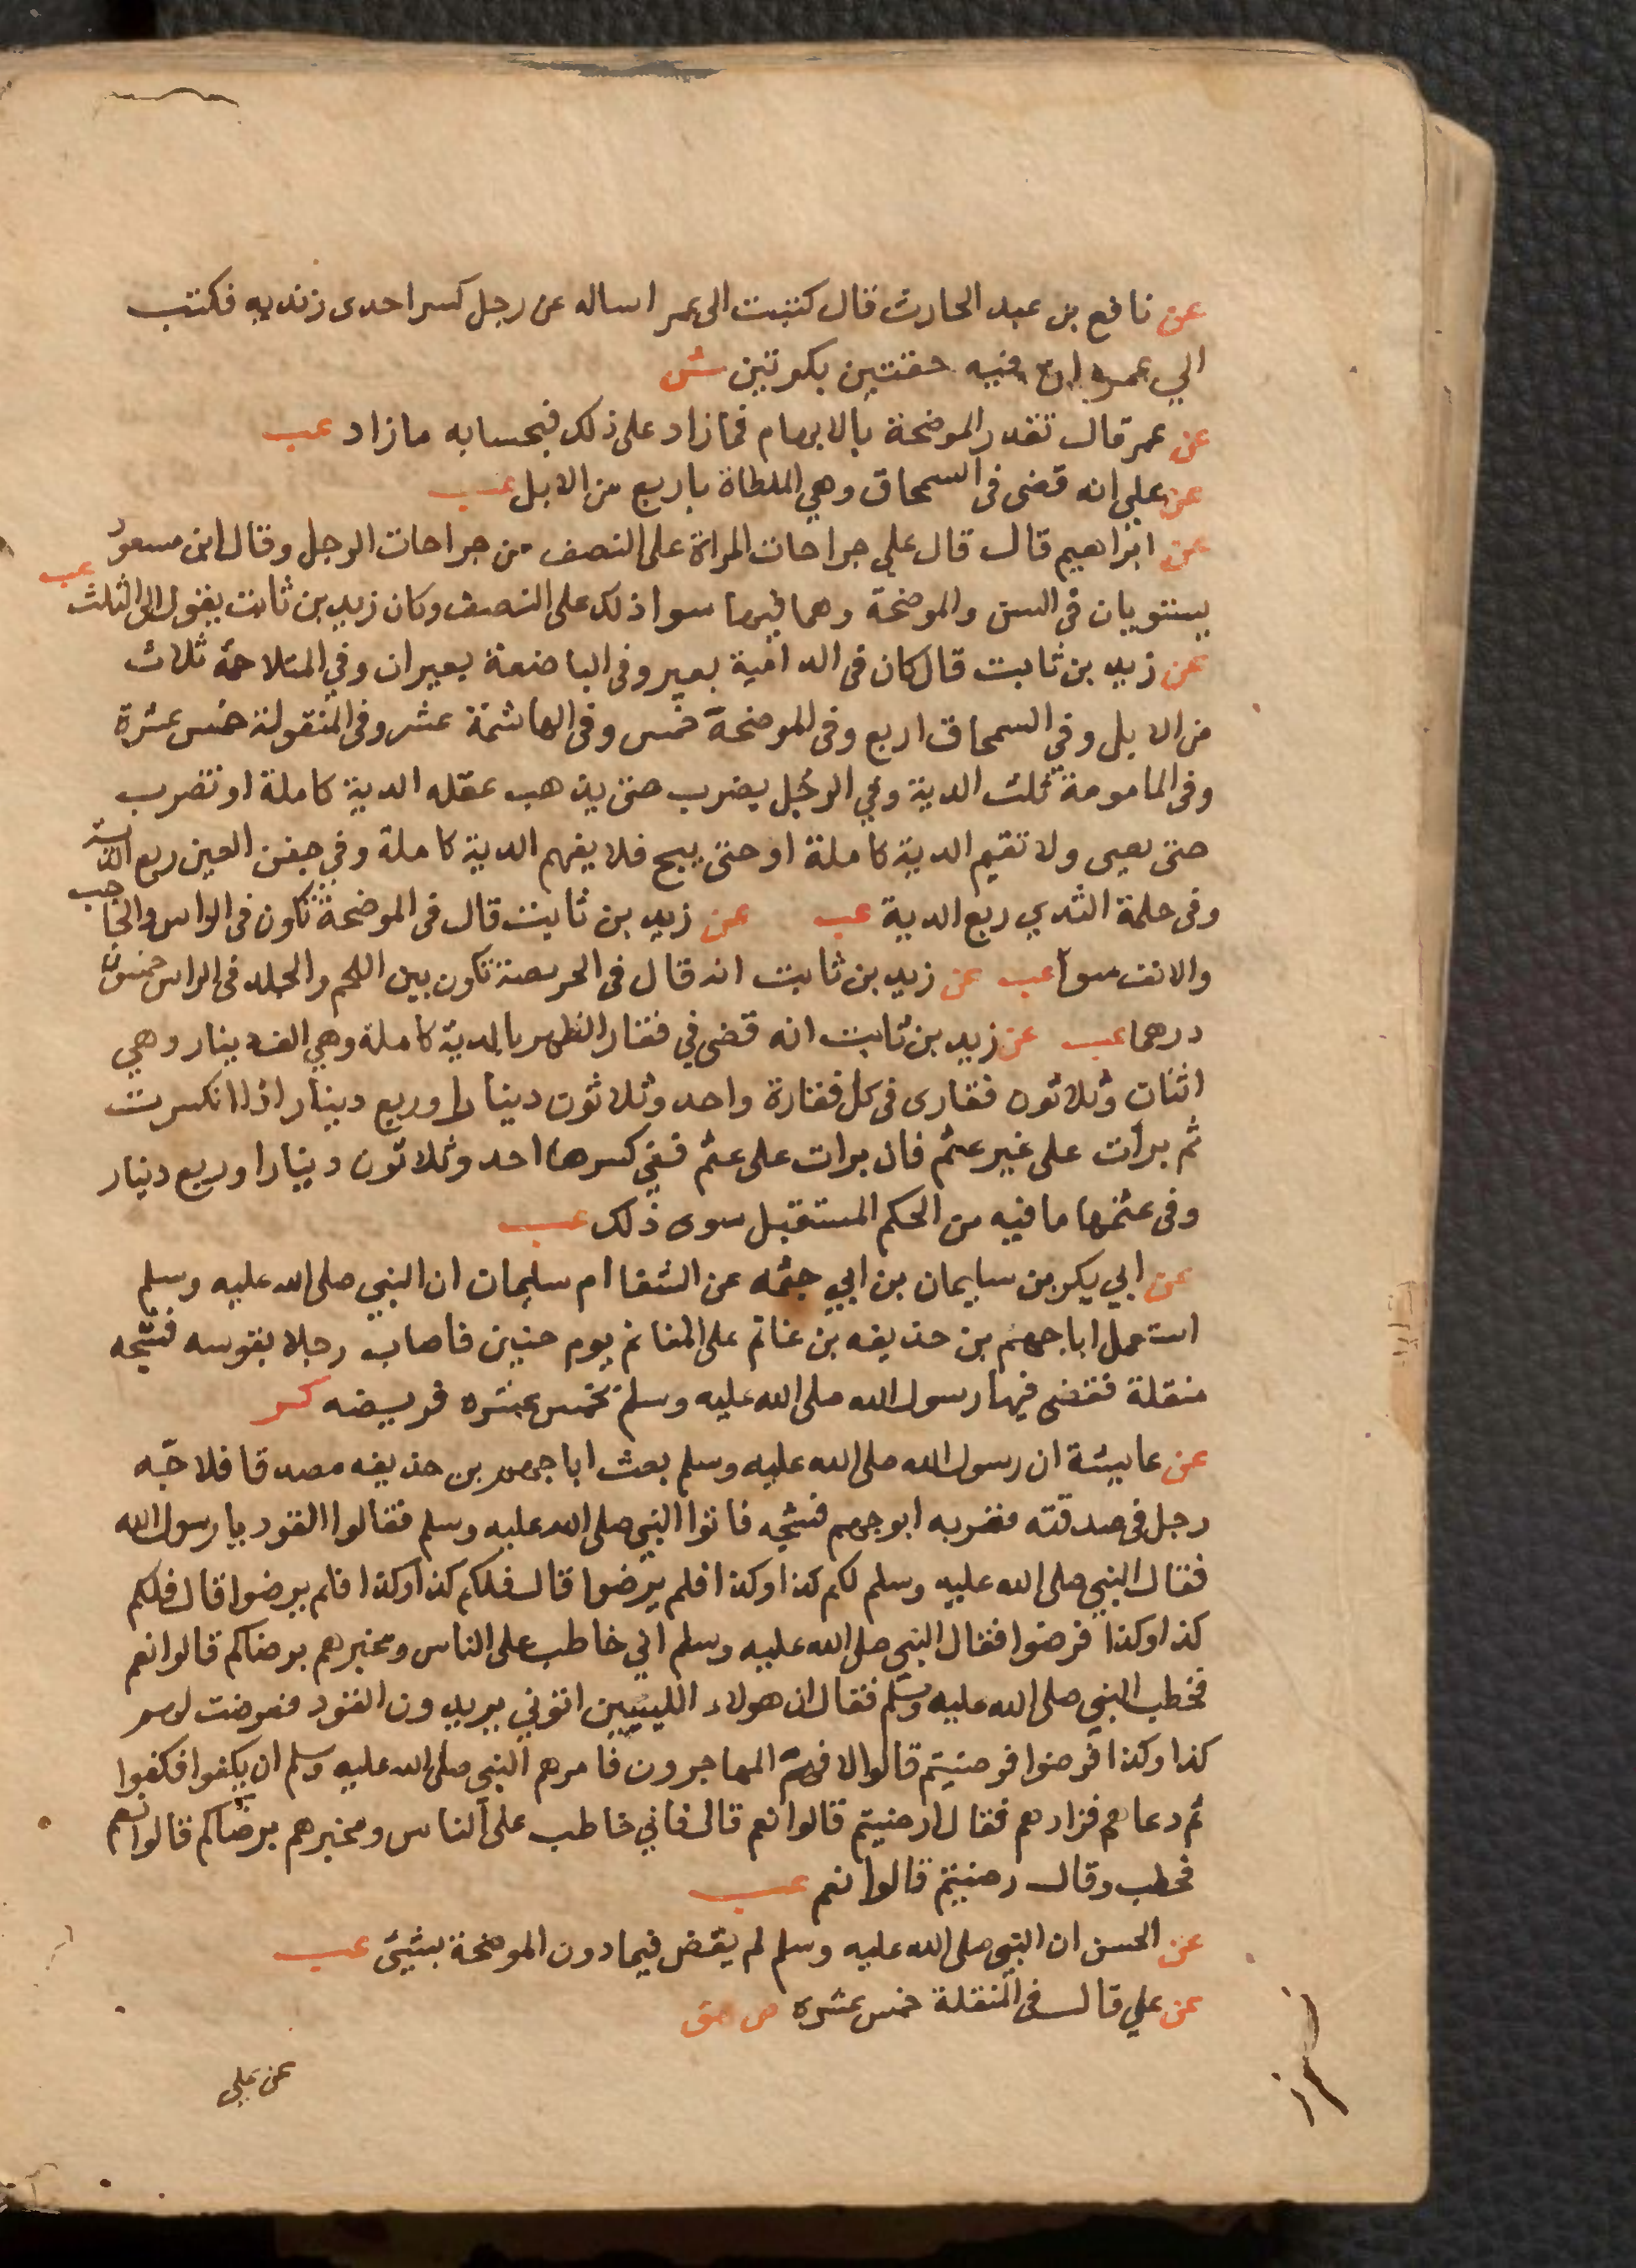 عن نافع بن عبد الحارث قال كتبت الى عمر اساله عن رجل كسر احدى زنديه فكتب
الي عمر ان فيه حقتين بكرتين ش
عن عمر قال تقدر الموضحة بالابهام فما زاد على ذلك فبحسابه ما زاد عب
عن علي انه قضى فى السمحاق وهي الملطاة باربع من الابل عب
عن ابراهيم قال قال علي جراحات المراة على النصف من جراحات الرجل وقال ابن مسعود
يستويان فى السن والموضحة وهما فيما سوا ذلك على النصف وكان زيد بن ثابت يقول الى الثلث عب
عن زيد بن ثابت قال كان فى الدامية بعير وفى الباضعة بعيران وفي المتلاحمة ثلاث
من الابل وفي السمحاق اربع وفى الموضحة خمس وفى الهاشمة عشر وفى المنقولة خمس عشرة
وفى المامومة ثلث الدية وفي الرجل يضرب حتى يذهب عقله الدية كاملة او تضرب
حتى يعيى ولا تقيم الدية كاملة او حتى يبح فلا يفهم الدية كاملة وفي جفن العين ربع الدية
وفى حلمة الثدي ربع الدية عب عن زيد بن ثابت قال فى الموضحة تكون فى الراس والحاجب
والانف سوا عب عن زيد بن ثابت انه قال فى الحرصة تكون بين اللحم والجلد فى الراس خمسون
درهما عب عن زيد بن ثابت انه قضى في فقار الظهر بالدية كاملة وهي الف دينار وهي
اثنان وثلاثون فقارى فى كل فقارة واحد وثلاثون دينارا وربع دينار اذا انكسرت
ثم برأت على غير عثم فان برات على عثم ففي كسرها احد وثلاثون دينارا وربع دينار
وفى عثمها ما فيه من الحكم المستقبل سوى ذلك عب
عن ابي بكر بن سليمان بن ابي حثمه عن الشفا ام سليمان ان النبي صلى الله عليه وسلم
استعمل ابا جهم بن حذيفه بن غانم على المغانم يوم حنين فاصاب رجلا بقوسه فشجه
منقلة فقضى فيها رسول الله صلى الله عليه وسلم بخمس عشره فريضه كر
عن عايشة ان رسول الله صلى الله عليه وسلم بعث ابا جهم بن حذيفه مصدقا فلاجّه
رجل فى صدقته فضربه ابو جهم فشجه فاتوا النبي صلى الله عليه وسلم فقالوا القود يا رسول الله
فقال النبي صلى الله عليه وسلم لكم كذا وكذا فلم يرضوا قال فلكم كذا وكذا فلم يرضوا قال فلكم
كذا وكذا فرضوا فقال النبي صلى الله عليه وسلم اني خاطب على الناس ومخبرهم برضاكم قالوا نعم
فخطب النبي صلى الله عليه وسلم فقال ان هولاء الليثيين اتوني يريدون القود فعرضت لهم
كذا وكذا فرضوا فرضيتم قالوا لا فهمّ المهاجرون فامرهم النبي صلى الله عليه وسلم ان يكفوا فكفوا
ثم دعاهم فزادهم فقال ارضيتم قالوا نعم قال فاني خاطب على الناس ومخبرهم برضاكم قالوا نعم
فخطب وقال رضيتم قالوا نعم عب
عن الحسن ان النبي صلى الله عليه وسلم لم يقض فيما دون الموضحة بشيئ عب
عن علي قال فى المنقلة خمس عشره ص هق
عن علي